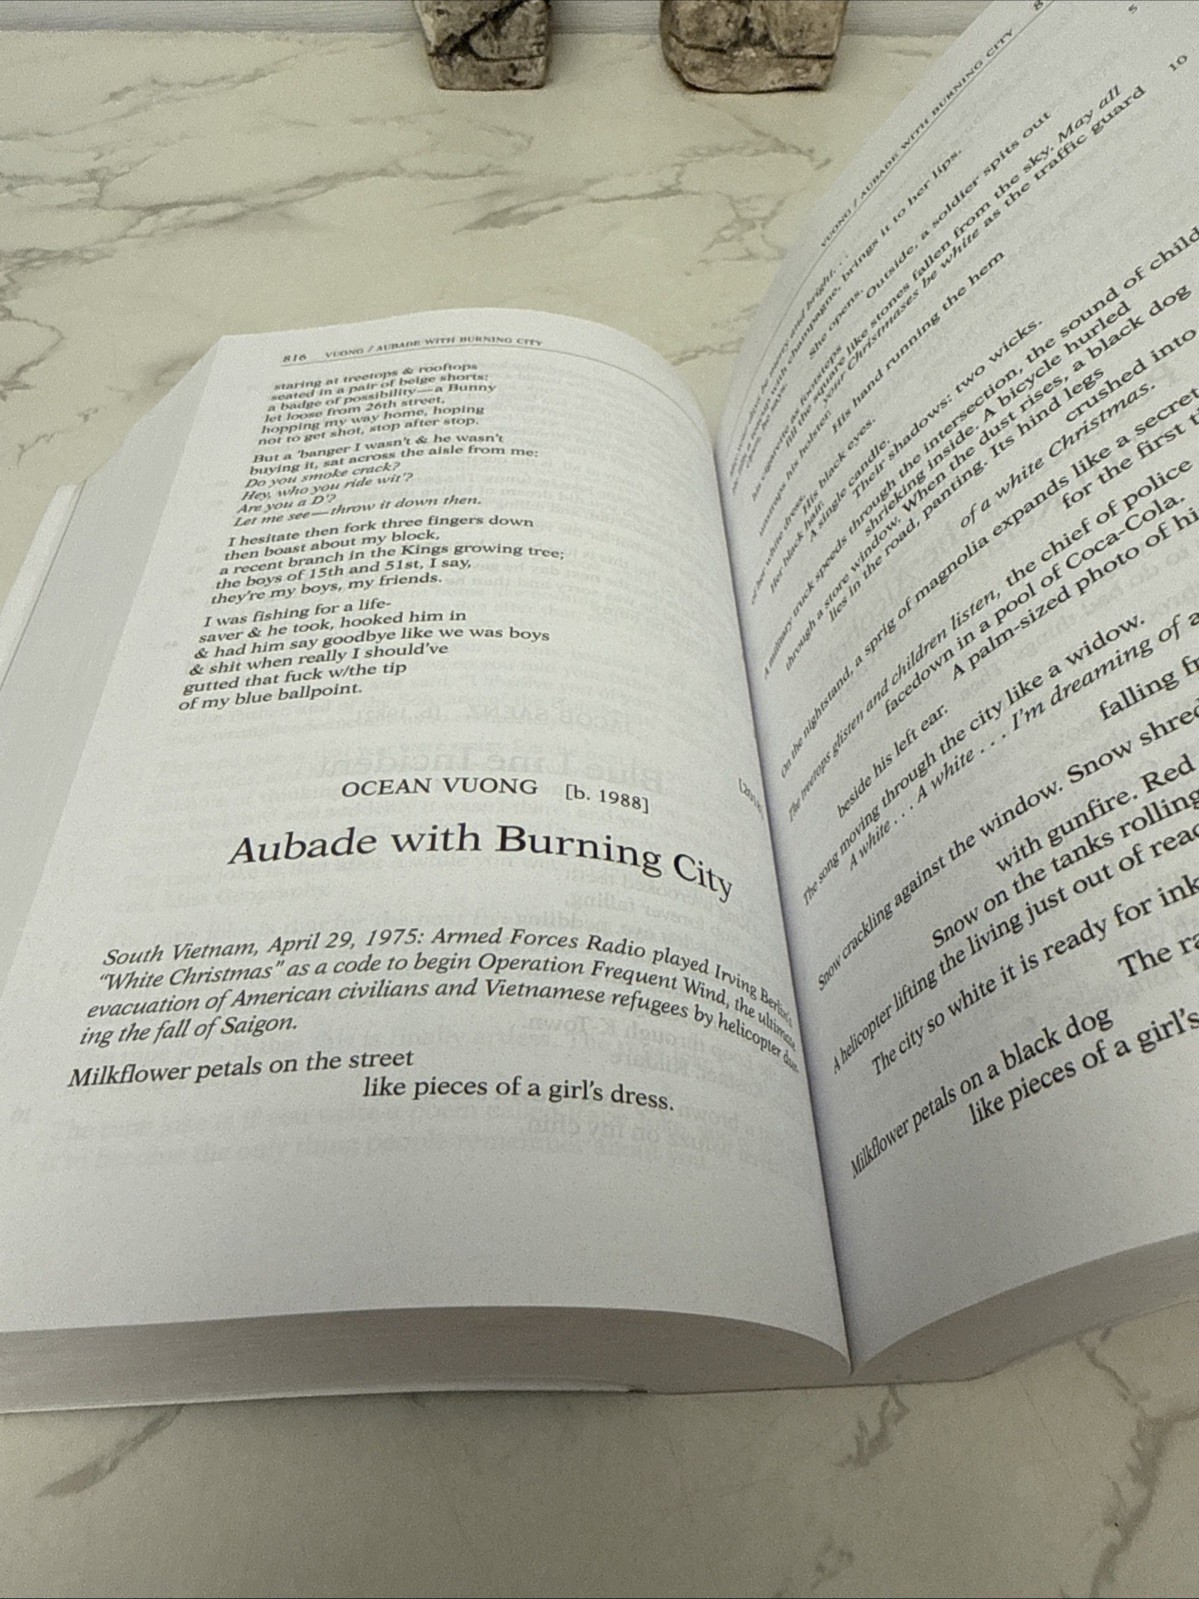 816 VUONG / AUBADE WITH BURNING CITY
staring at treetops & rooftops
seated in a pair of beige shorts:
a badge of possibility—a Bunny
let loose from 26th street,
hopping my way home, hoping
not to get shot, stop after stop.
But a 'banger I wasn't & he wasn't
buying it, sat across the aisle from me:
Do you smoke crack?
Hey, who you ride wit'?
Are you a D'?
Let me see—throw it down then.
I hesitate then fork three fingers down
then boast about my block,
a recent branch in the Kings growing tree;
the boys of 15th and 51st, I say,
they're my boys, my friends.
I was fishing for a life-
saver & he took, hooked him in
& had him say goodbye like we was boys
& shit when really I should've
gutted that fuck w/the tip
of my blue ballpoint.
OCEAN VUONG [b. 1988]
Aubade with Burning City
South Vietnam, April 29, 1975: Armed Forces Radio played Irving Berlin's
“White Christmas” as a code to begin Operation Frequent Wind, the ultimate
evacuation of American civilians and Vietnamese refugees by helicopter dur-
ing the fall of Saigon.
Milkflower petals on the street
like pieces of a girl's dress.
VUONG / AUBADE WITH BURNING CITY 8
and bright . . .
champagne, brings it to her lips.
She opens.
Outside, a soldier spits out 5
footsteps
fill the square like stones fallen from the sky. May all
your Christmases be white as the traffic guard
his holster.
His hand running the hem 10
white dress.
His black eyes.
Her black hair.
A single candle.
Their shadows: two wicks.
A military truck speeds through the intersection, the sound of child
shrieking inside. A bicycle hurled
through a store window. When the dust rises, a black dog
lies in the road, panting. Its hind legs
crushed into
of a white Christmas.
On the nightstand, a sprig of magnolia expands like a secret
for the first
The treetops glisten and children listen, the chief of police
facedown in a pool of Coca-Cola.
A palm-sized photo of hi
beside his left ear.
The song moving through the city like a widow.
A white . . . A white . . . I'm dreaming of a
falling fr
Snow crackling against the window. Snow shred
with gunfire. Red
Snow on the tanks rolling
A helicopter lifting the living just out of reac
The city so white it is ready for ink
The ra
Milkflower petals on a black dog
like pieces of a girl's